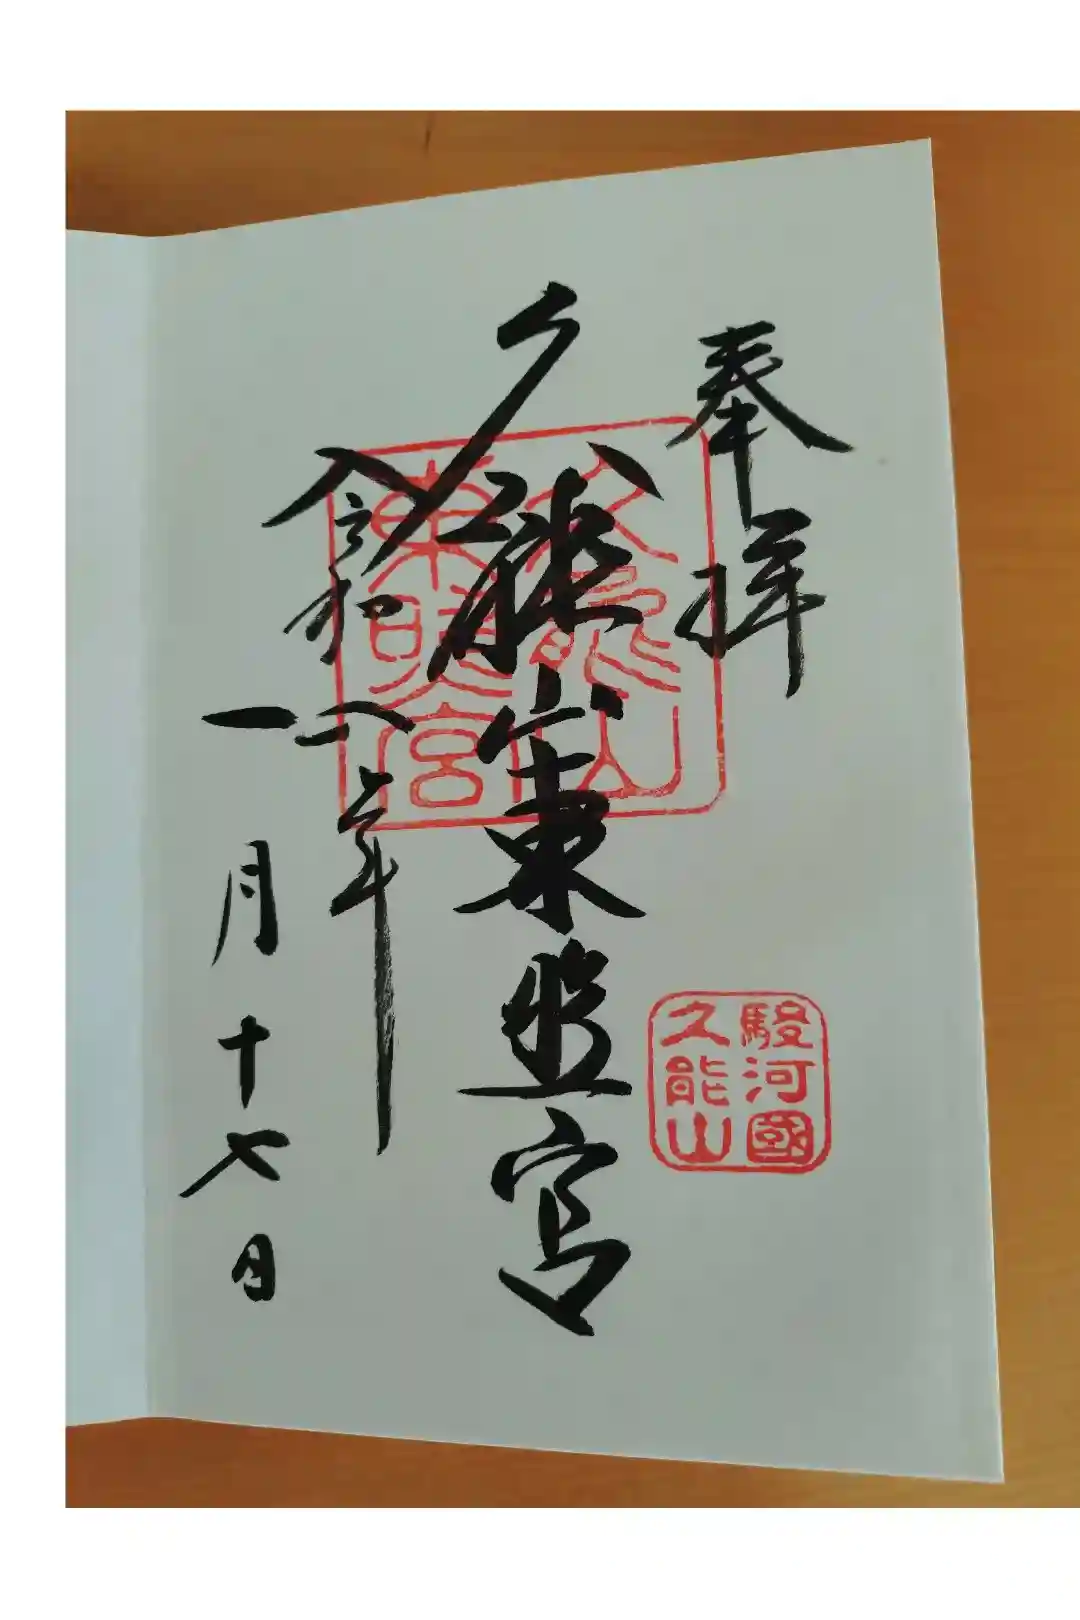 奉拝
久能山東照宮
令和八年
一月十七日
久能山
東照宮
駿河國
久能山